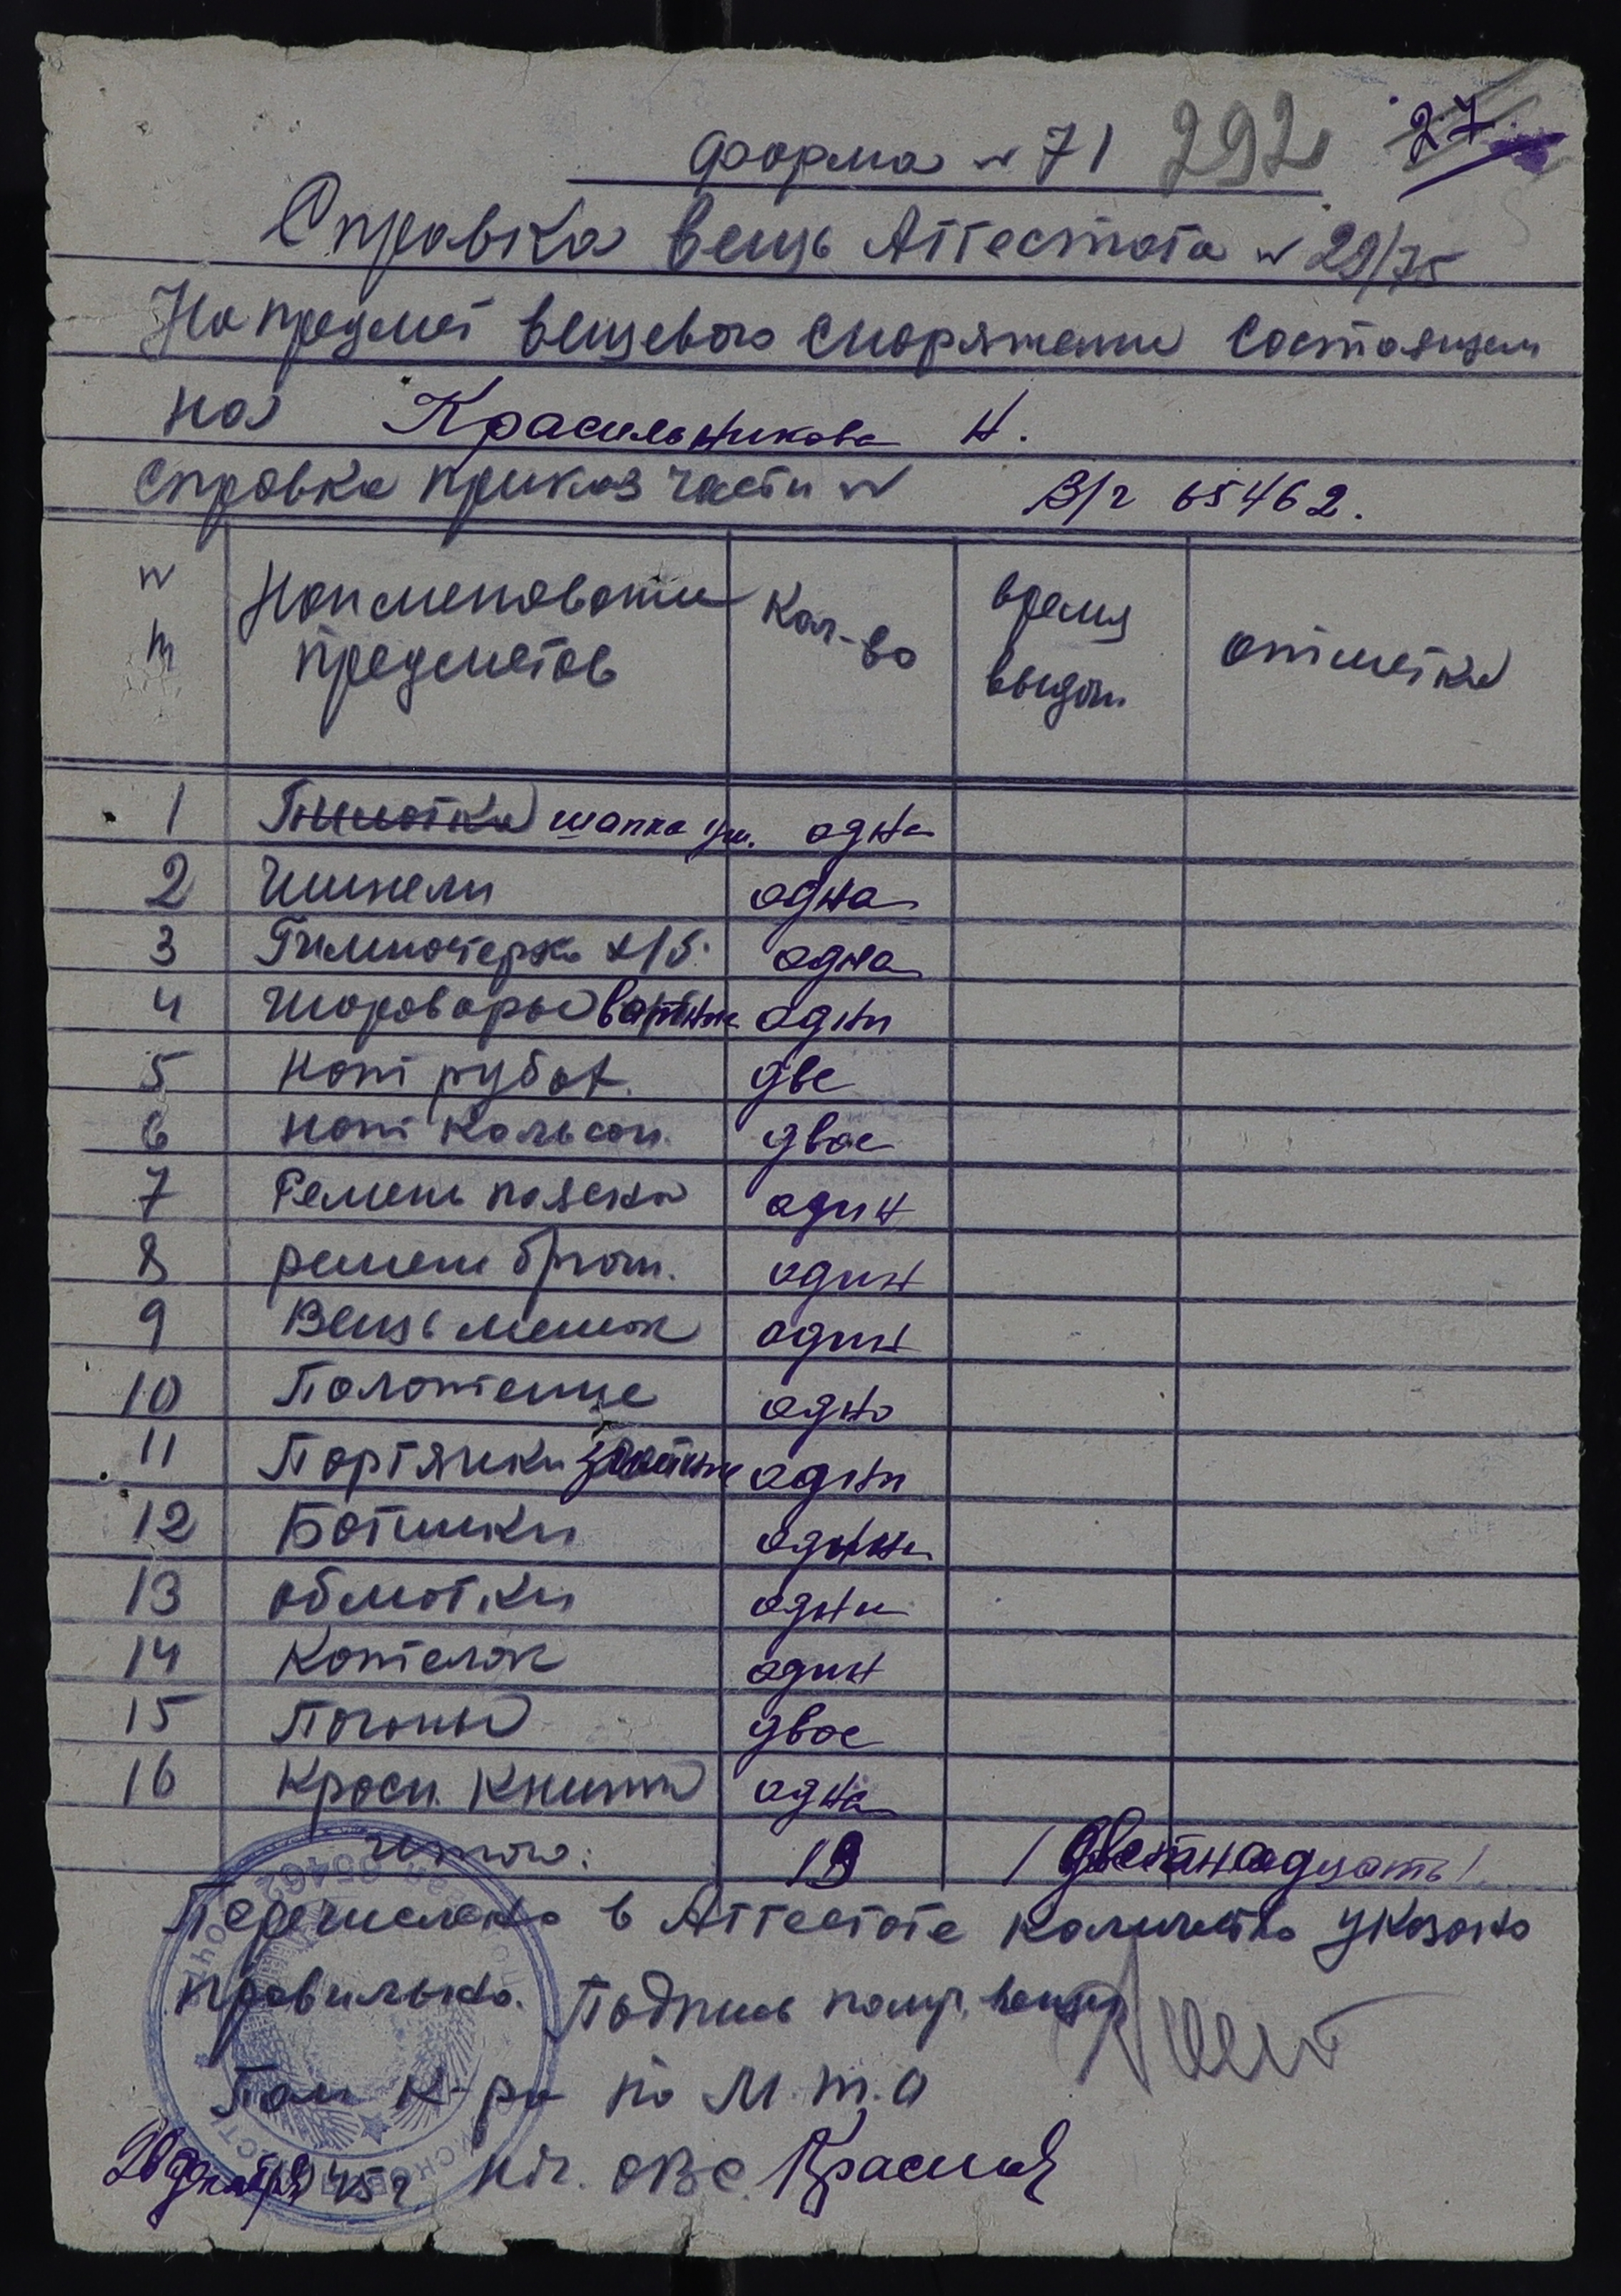 форма № 71 292 27
Справка вещь Аттестата № 29/75
На предмет вещевого сноряжения состоящем
на Красильникова Н.
Справка приказ части № В/ч 65462.
№ п Наименовании предметов Кол-во время выдачи отметка
1 Пилотка шапка уш. одна
2 Шинели одна
3 Гимностерка х/б. одна
4 Шоровары ватные одни
5 Нат рубах. две
6 нат кальсон. двое
7 Ремень поясной один
8 ремень брюч. один
9 Вещь мешок один
10 Полотенце одно
11 Портянки одни
12 Ботинки одни
13 обмотки одни
14 Котелок один
15 Погоны двое
16 Красн. Книжка одна
Итого: 19
Перечислено в Аттестате количество указано
правильно. Подпись получ. вещей
Пом к-ра по М.т.о
20 декабря 45 г. Нач. ОВС.